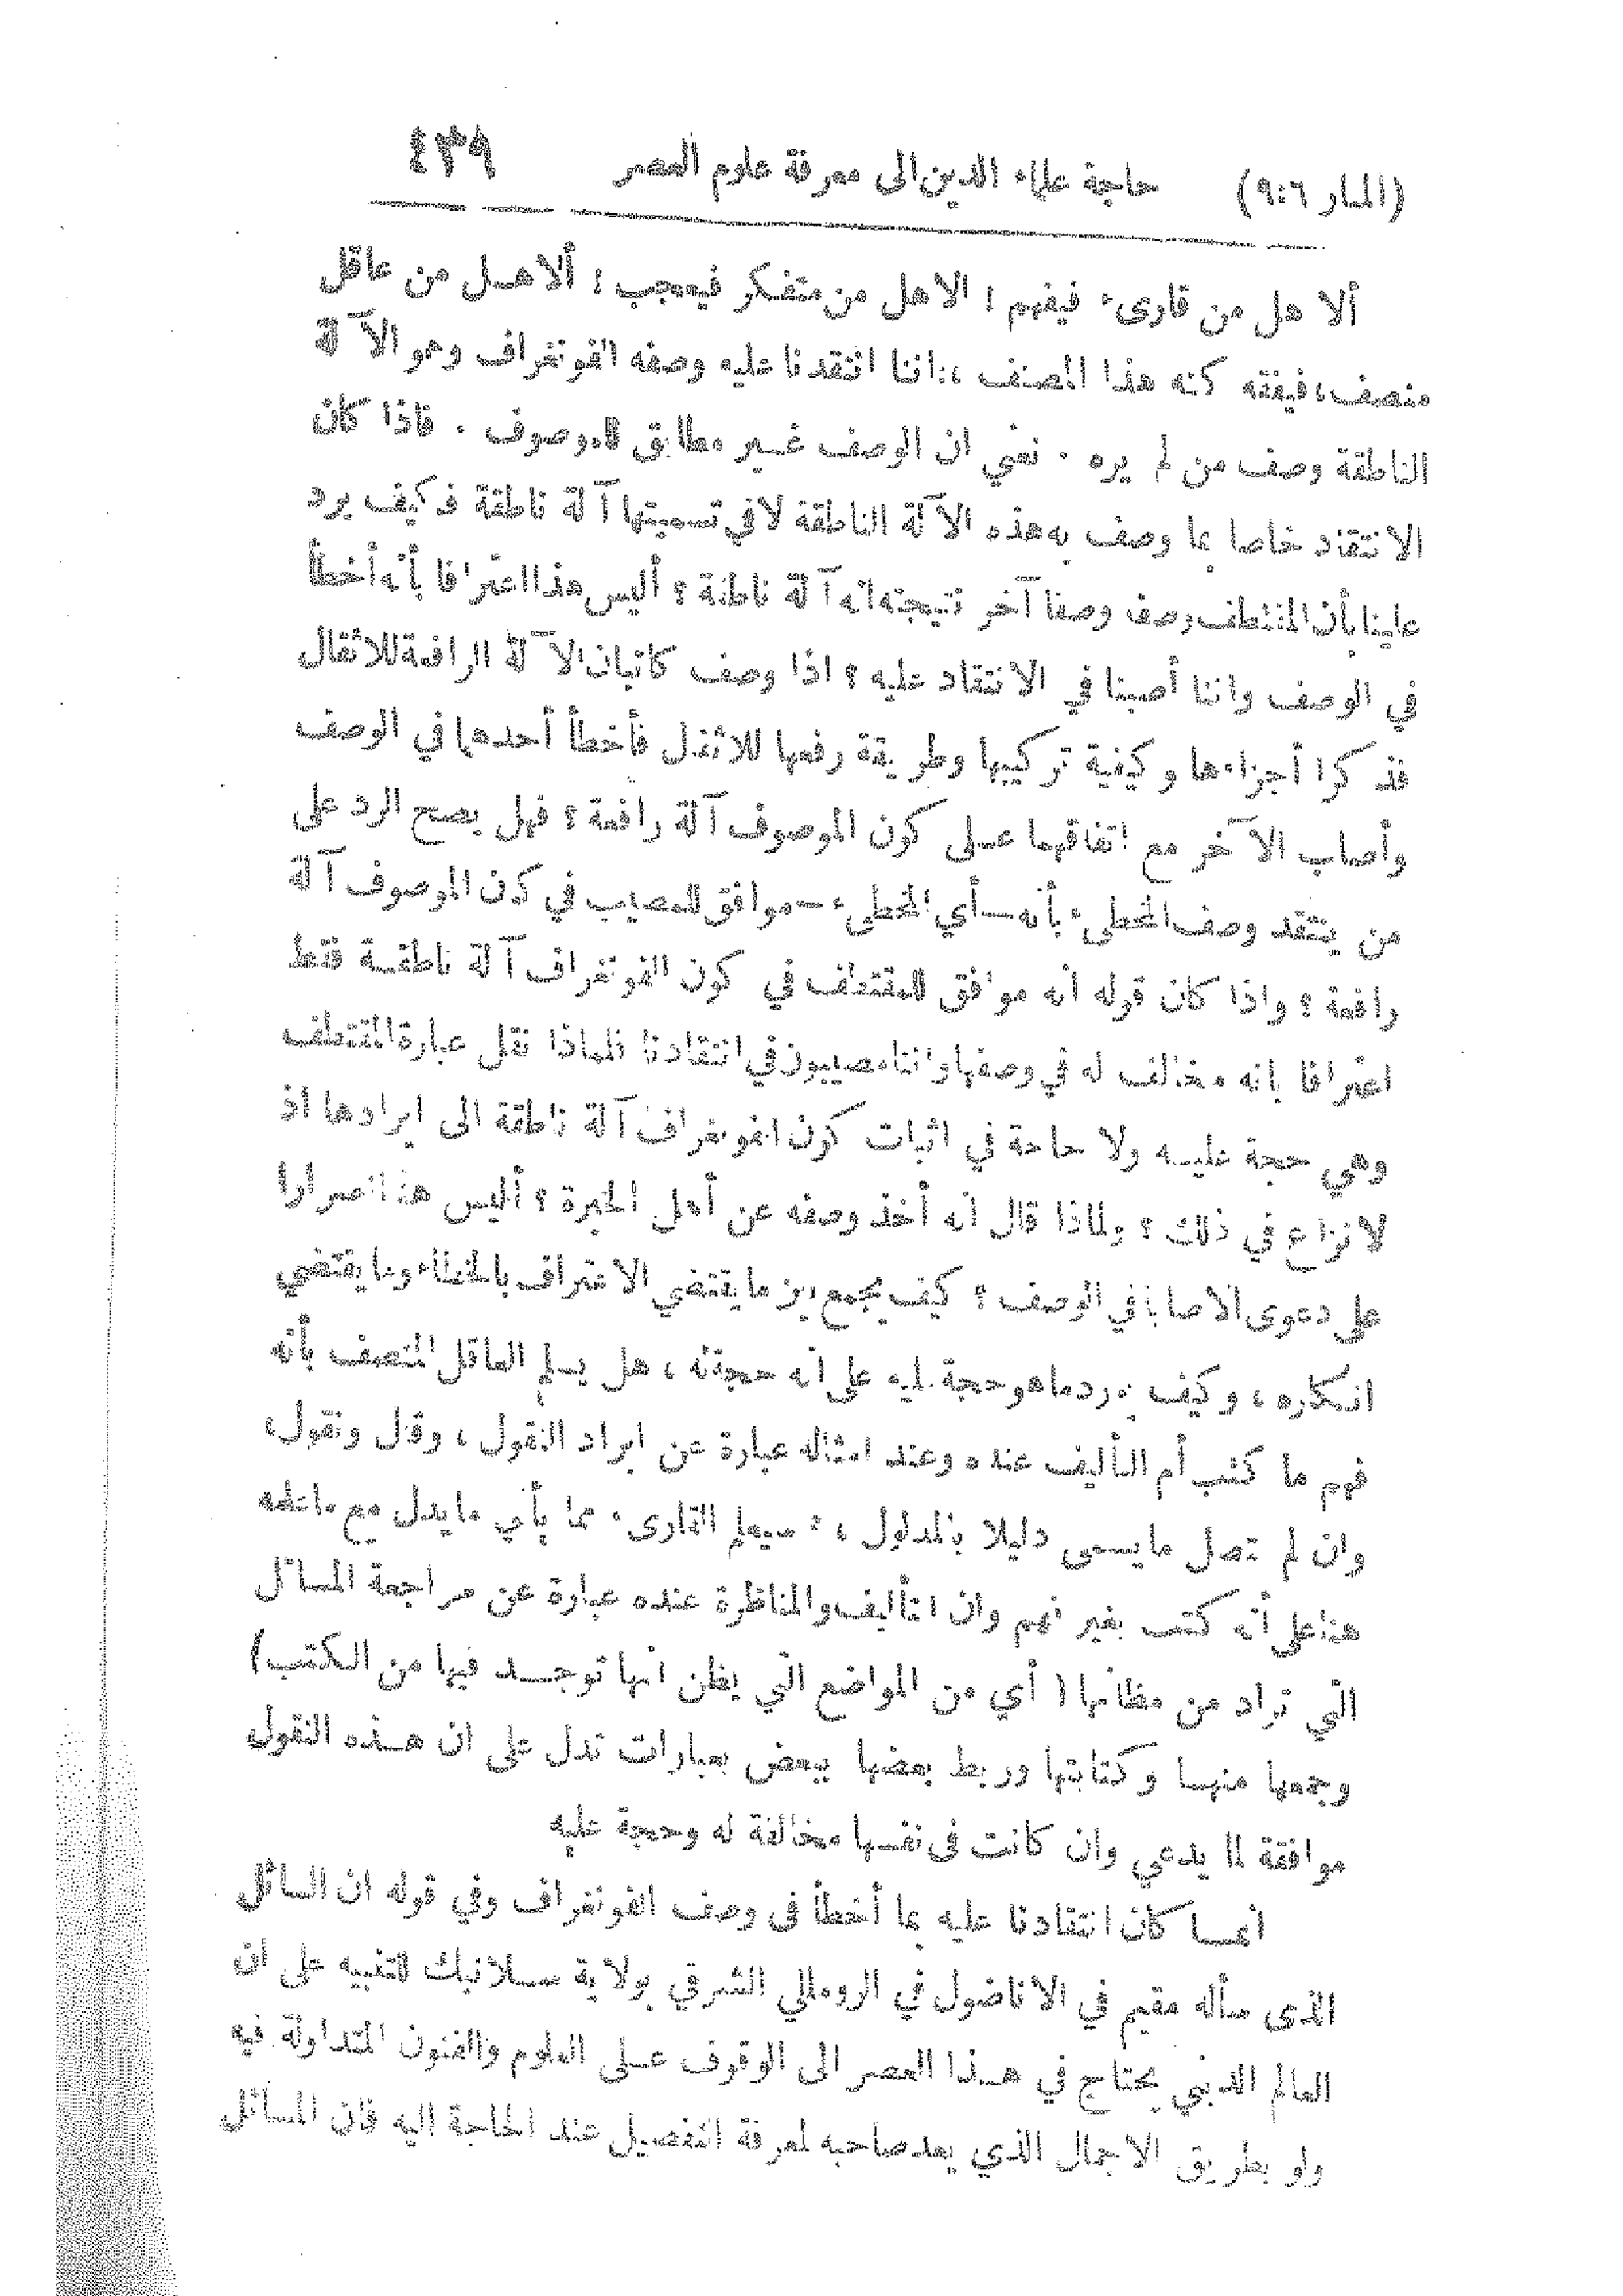 (المنار ٩:٦) حاجة علماء الدين الى معرفة علوم العصر ٤٣٩
ألا هل من قارىء فيفهم ؛ الا هل من متفكر فيعجب ؛ ألا هل من عاقل
منصف، فيفقه كنه هذا المصنف ،: اننا انتقدنا عليه وصفه الفونغراف وهو الآلة
الناطقة وصف من لم يره . نعني ان الوصف غير مطابق للموصوف . فاذا كان
الانتقاد خاصا بما وصف به هذه الآلة الناطقة لا في تسميتها آلة ناطقة فكيف يرد
علينا بأن المقتطف وصف وصفا آخر نتيجته انه آلة ناطقة ؟ أليس هذا اعترافا بأنه أخطأ
في الوصف واننا أصبنا في الانتقاد عليه ؟ اذا وصف كاتبان الآلة الرافعة للاثقال
فذكرا أجزاءها وكيفية تركيبها وطريقة رفعها للاثقال فأخطأ أحدهما في الوصف
وأصاب الآخر مع اتفاقهما على كون الموصوف آلة رافعة ؟ فهل يصح الرد على
من ينتقد وصف المخطىء بأنه — أي المخطىء — موافق للمصيب في كون الموصوف آلة
رافعة ؟ واذا كان قوله أنه موافق للمقتطف في كون الفونغراف آلة ناطقة فقط
اعترافا بانه مخالف له في وصفها واننا مصيبون في انتقادنا فلماذا نقل عبارة المقتطف
وهي حجة عليه ولا حاجة في اثبات كون الفونغراف آلة ناطقة الى ايرادها اذ
لا نزاع في ذلك ؟ ولماذا قال انه أخذ وصفه عن أهل الخبرة ؟ أليس هذا اصرارا
على دعوى الاصابة في الوصف ؟ كيف يجمع بين ما يقتضي الاعتراف بالخطاء وما يقتضي
انكاره ، وكيف يورد ما هو حجة عليه على انه حجة له ، هل يسلم العاقل المنصف بأنه
فهم ما كتب أم التأليف عنده وعند امثاله عبارة عن ايراد النقول ، وقال ونقول،
وان لم تصل ما يسمى دليلا بالمدلول ، ؛ سيعلم القارىء مما يأتي ما يدل مع ما تقدمه
هنا على أنه كتب بغير فهم وان التأليف والمناظرة عنده عبارة عن مراجعة المسائل
التي تراد من مظانها ( أي من المواضع التي يظن انها توجد فيها من الكتب )
وجمعها منها وكتابتها وربط بعضها ببعض بعبارات تدل على ان هذه النقول
موافقة لما يدعي وان كانت في نفسها مخالفة له وحجة عليه
انما كان انتقادنا عليه بما أخطأ في وصف الفونغراف وفي قوله ان السائل
الذي سأله مقيم في الاناضول في الروملي الشرقي بولاية سلانيك للتنبيه على ان
العالم الديني يحتاج في هذا العصر الى الوقوف على العلوم والفنون المتداولة فيه
ولو بطريق الاجمال الذي يعد صاحبه لمعرفة التفصيل عند الحاجة اليه فان المسائل